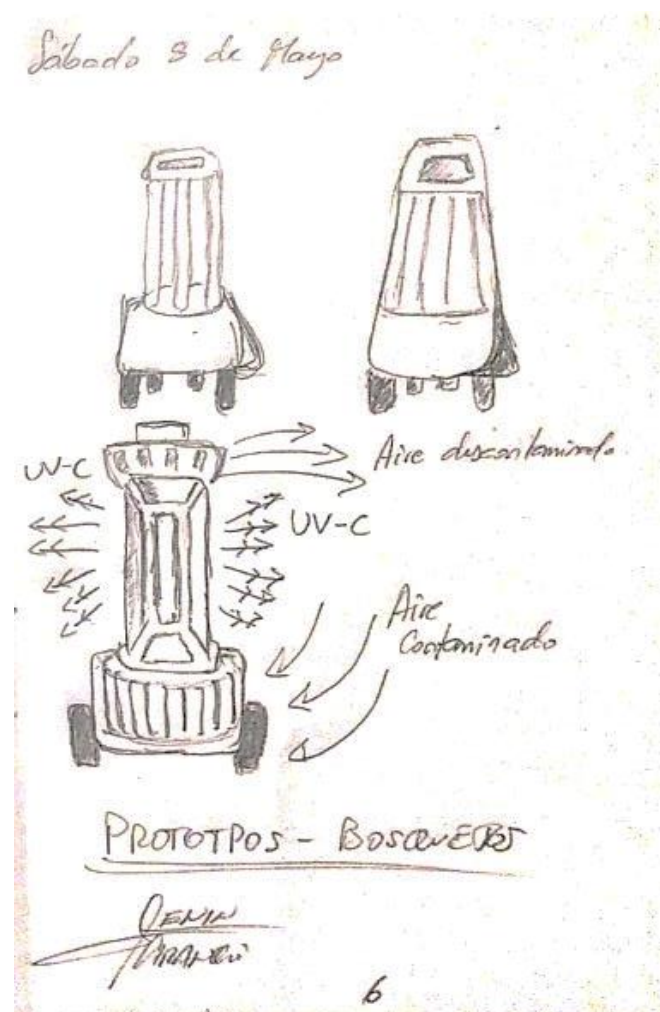 Sábado 8 de Mayo
Aire descontaminado
UV-C
UV-C
Aire
Contaminado
PROTOTPOS - BOSQUEJOS
6